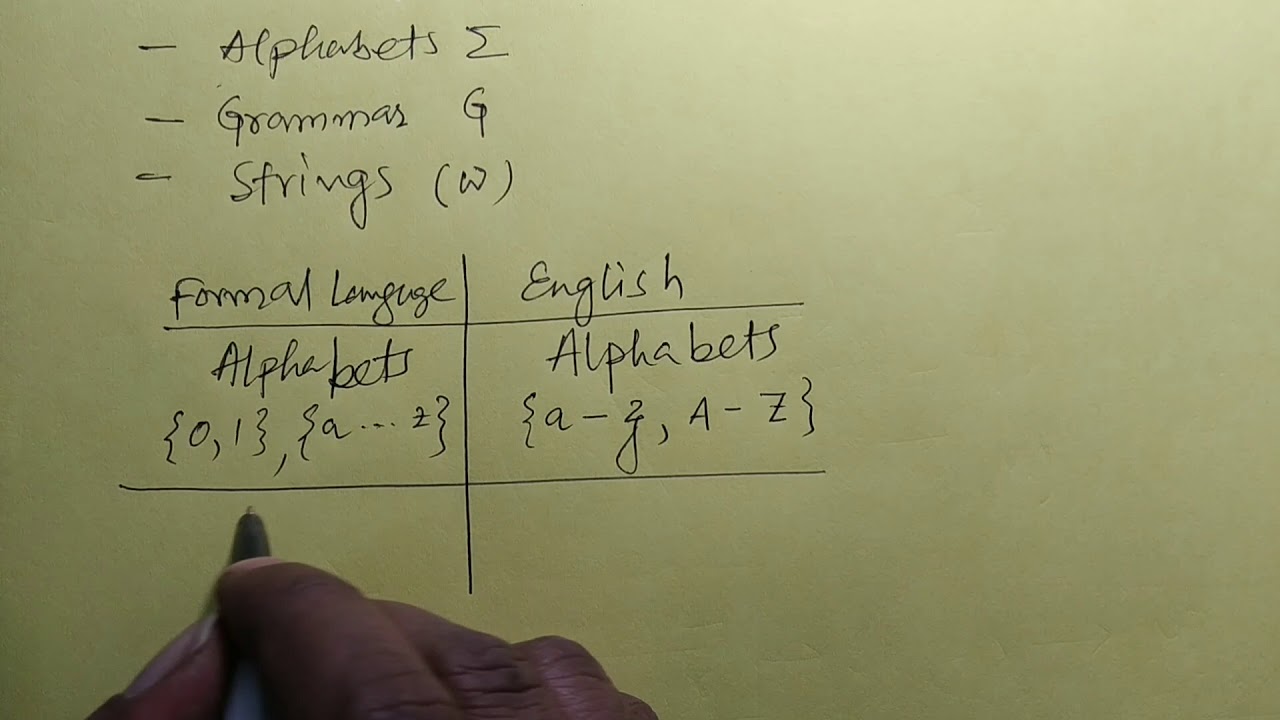 - Alphabets Σ
- Grammar G
- Strings (w)
Formal Languge | English
Alphabets | Alphabets
{0, 1}, {a ... z} | {a - z, A - Z}